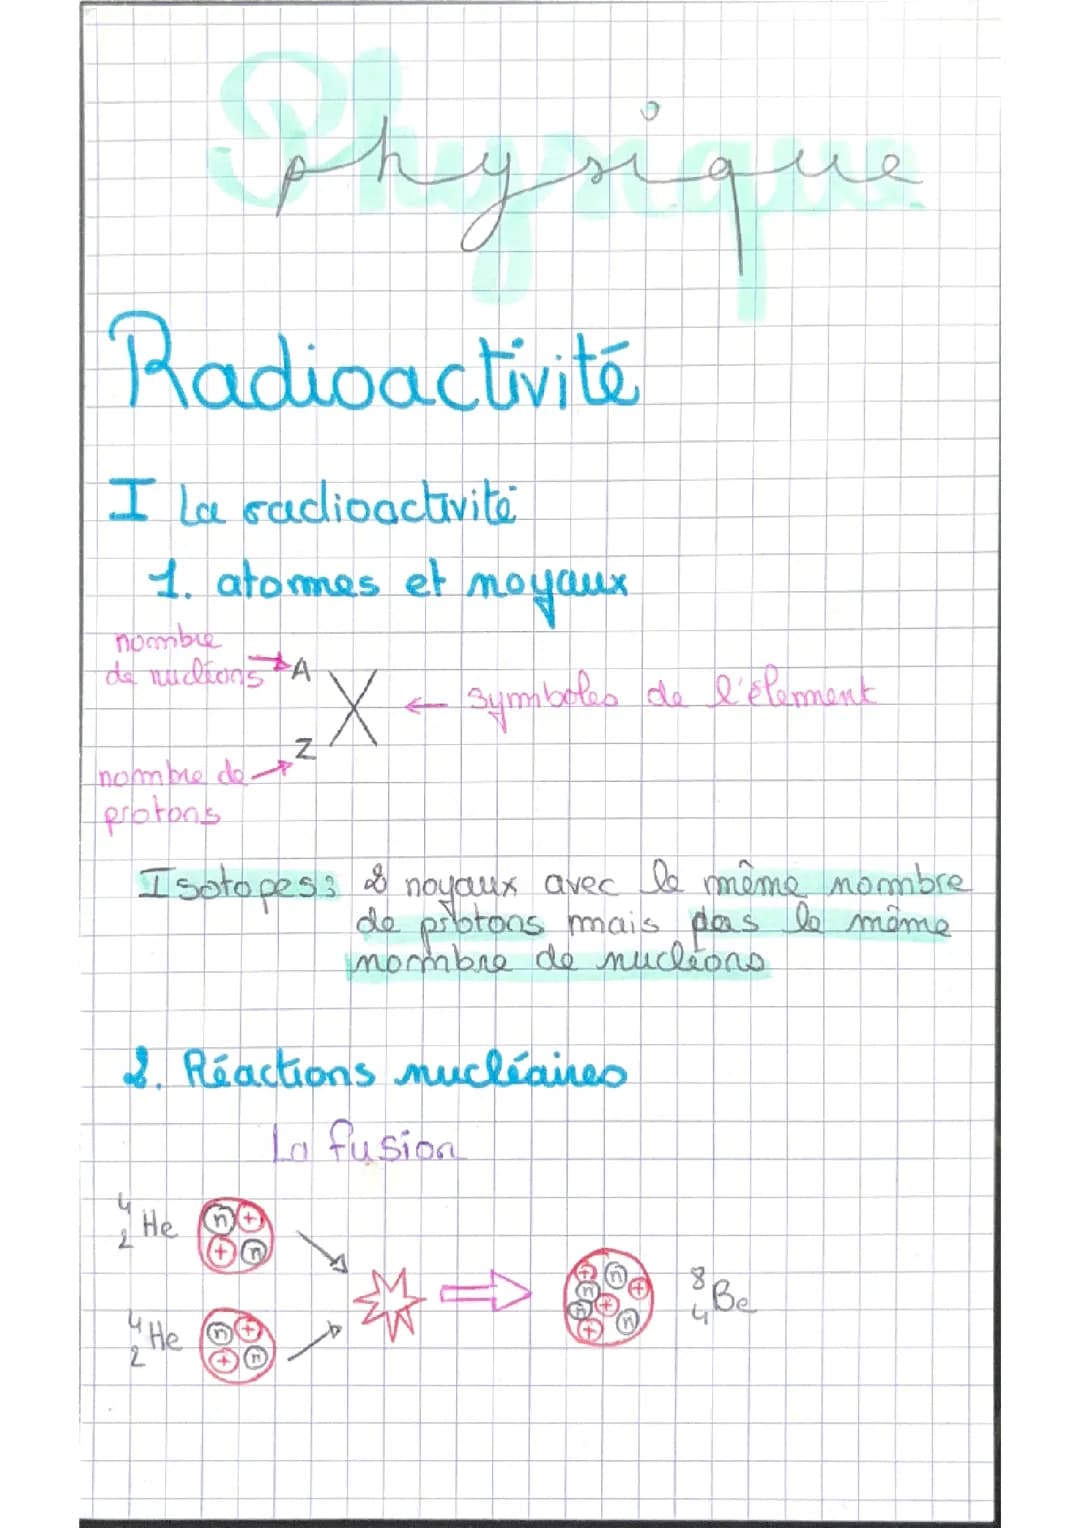 Physique
Radioactivité
I La radioactivité
1. atomes et noyaux
nombre
de nucléons → A
X ← symboles de l'élement
Z
nombre de →
protons
Isotopes : 2 noyaux avec le même nombre
de protons mais pas le même
nombre de nucléons
2. Réactions nucléaires
La fusion
4
2 He n + + n
4
2 He n + + n
8
4 Be